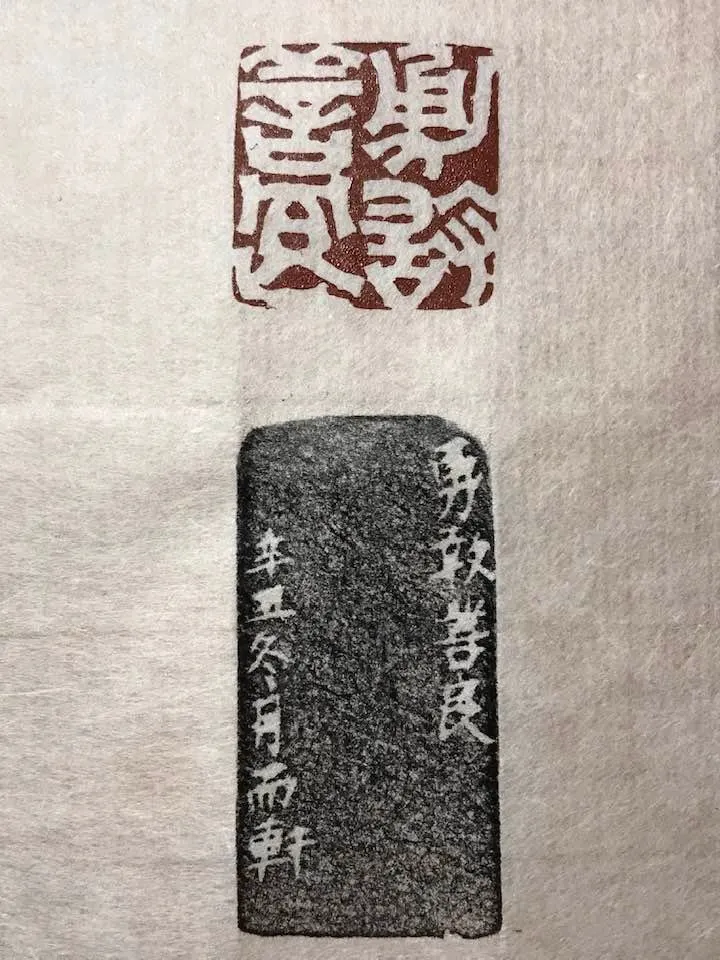 勇敢善良
勇敢善良
辛丑冬月雨軒